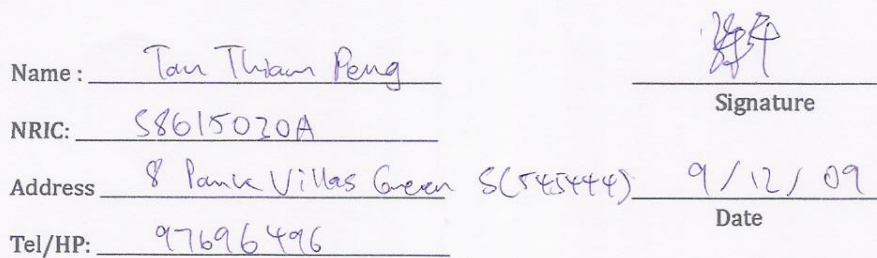 Name : Tan Thiam Peng
Signature
NRIC: S8615020A
Address 8 Park Villas Green S(545444) 9/12/09
Date
Tel/HP: 97696496